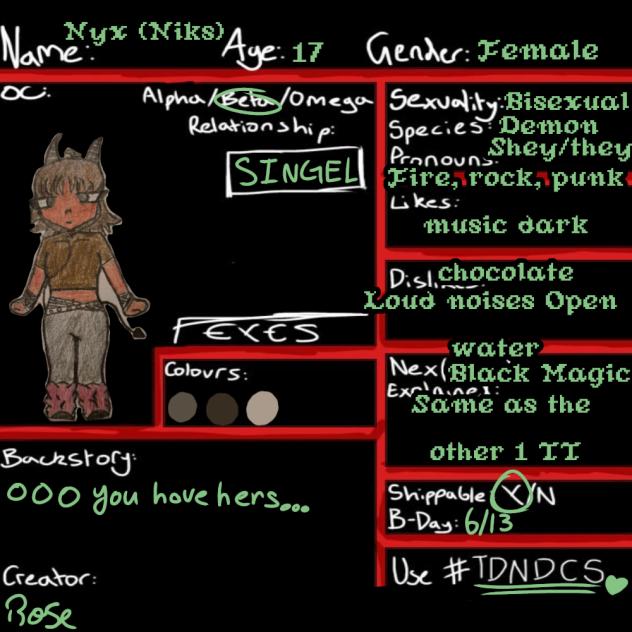 Name: Nyx (Niks) Age: 17 Gender: Female
OC:
Alpha/Beta/Omega
Relationship:
SINGEL
FEXES
Colours:
Sexuality: Bisexual
Species: Demon
Pronouns: Shey/they
Fire, rock, punk
Likes:
music dark
chocolate
Loud noises Open
water
Black Magic
Explained:
Same as the
other 1 TT
Shippable Y/N
B-Day: 6/13
Use #TDNDCS
Backstory:
OOO you hove hers...
Creator:
Rose